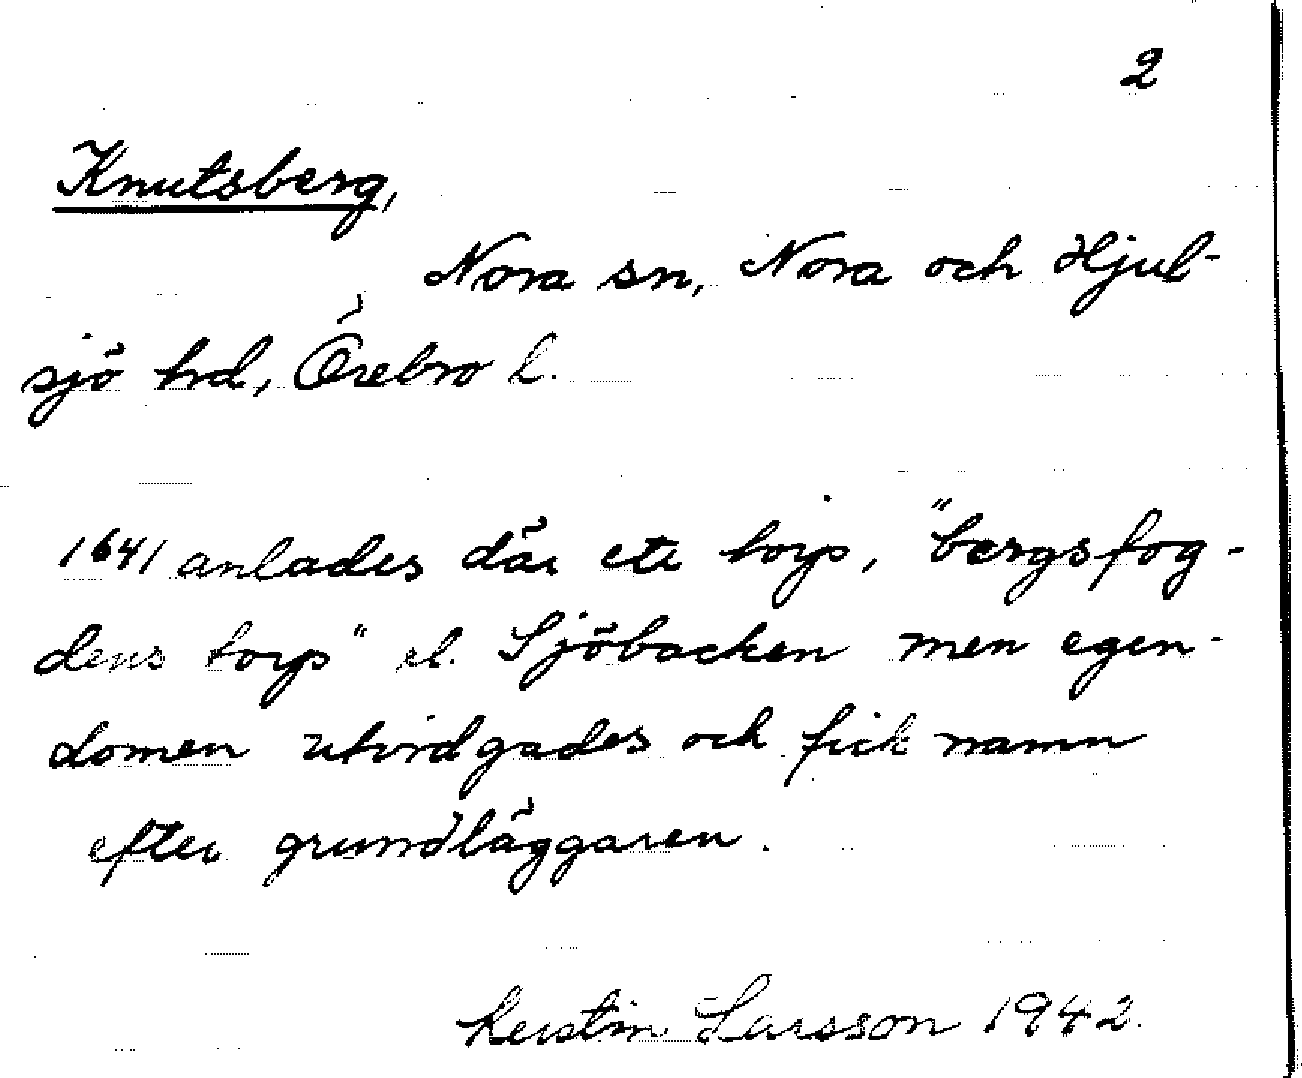 2
Knutsberg,
Nora sn, Nora och Hjul-
sjö hrd, Örebro l.
1641 anlades där ett torp, "bergsfog-
dens torp" el. Sjöbacken men egen-
domen utvidgades och fick namn
efter grundläggaren.
Kerstin Larsson 1942.